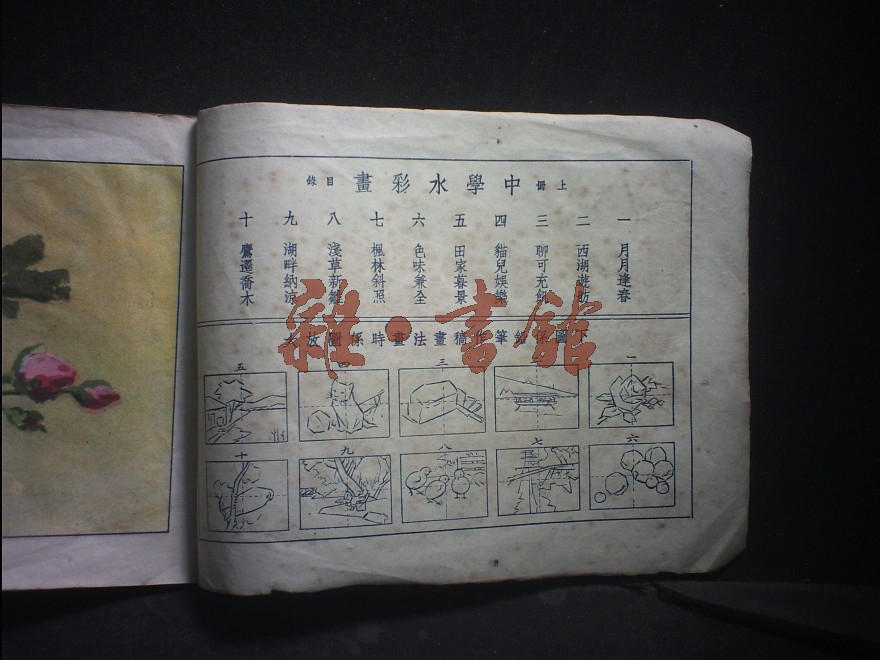 上冊 中學水彩畫 目錄
一 月月逢春
二 西湖遊舫
三 聊可充飢
四 貓兒娛樂
五 田家暮景
六 色味兼全
七 楓林斜照
八 淺草新雛
九 湖畔納涼
十 喬木
下圖係鉛筆作稿畫法畫時係圖放大
雜·書館
一 二 三 四 五
六 七 八 九 十